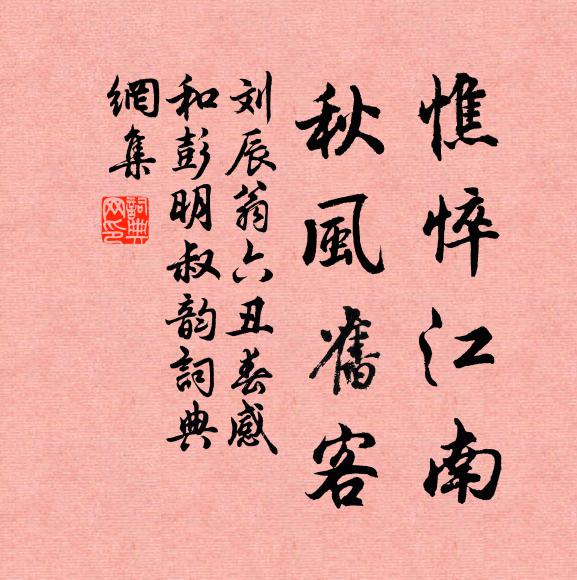 憔悴江南
秋風舊客
刘辰翁六丑春感
和彭明叔韵詞典
網集
詞典
网印